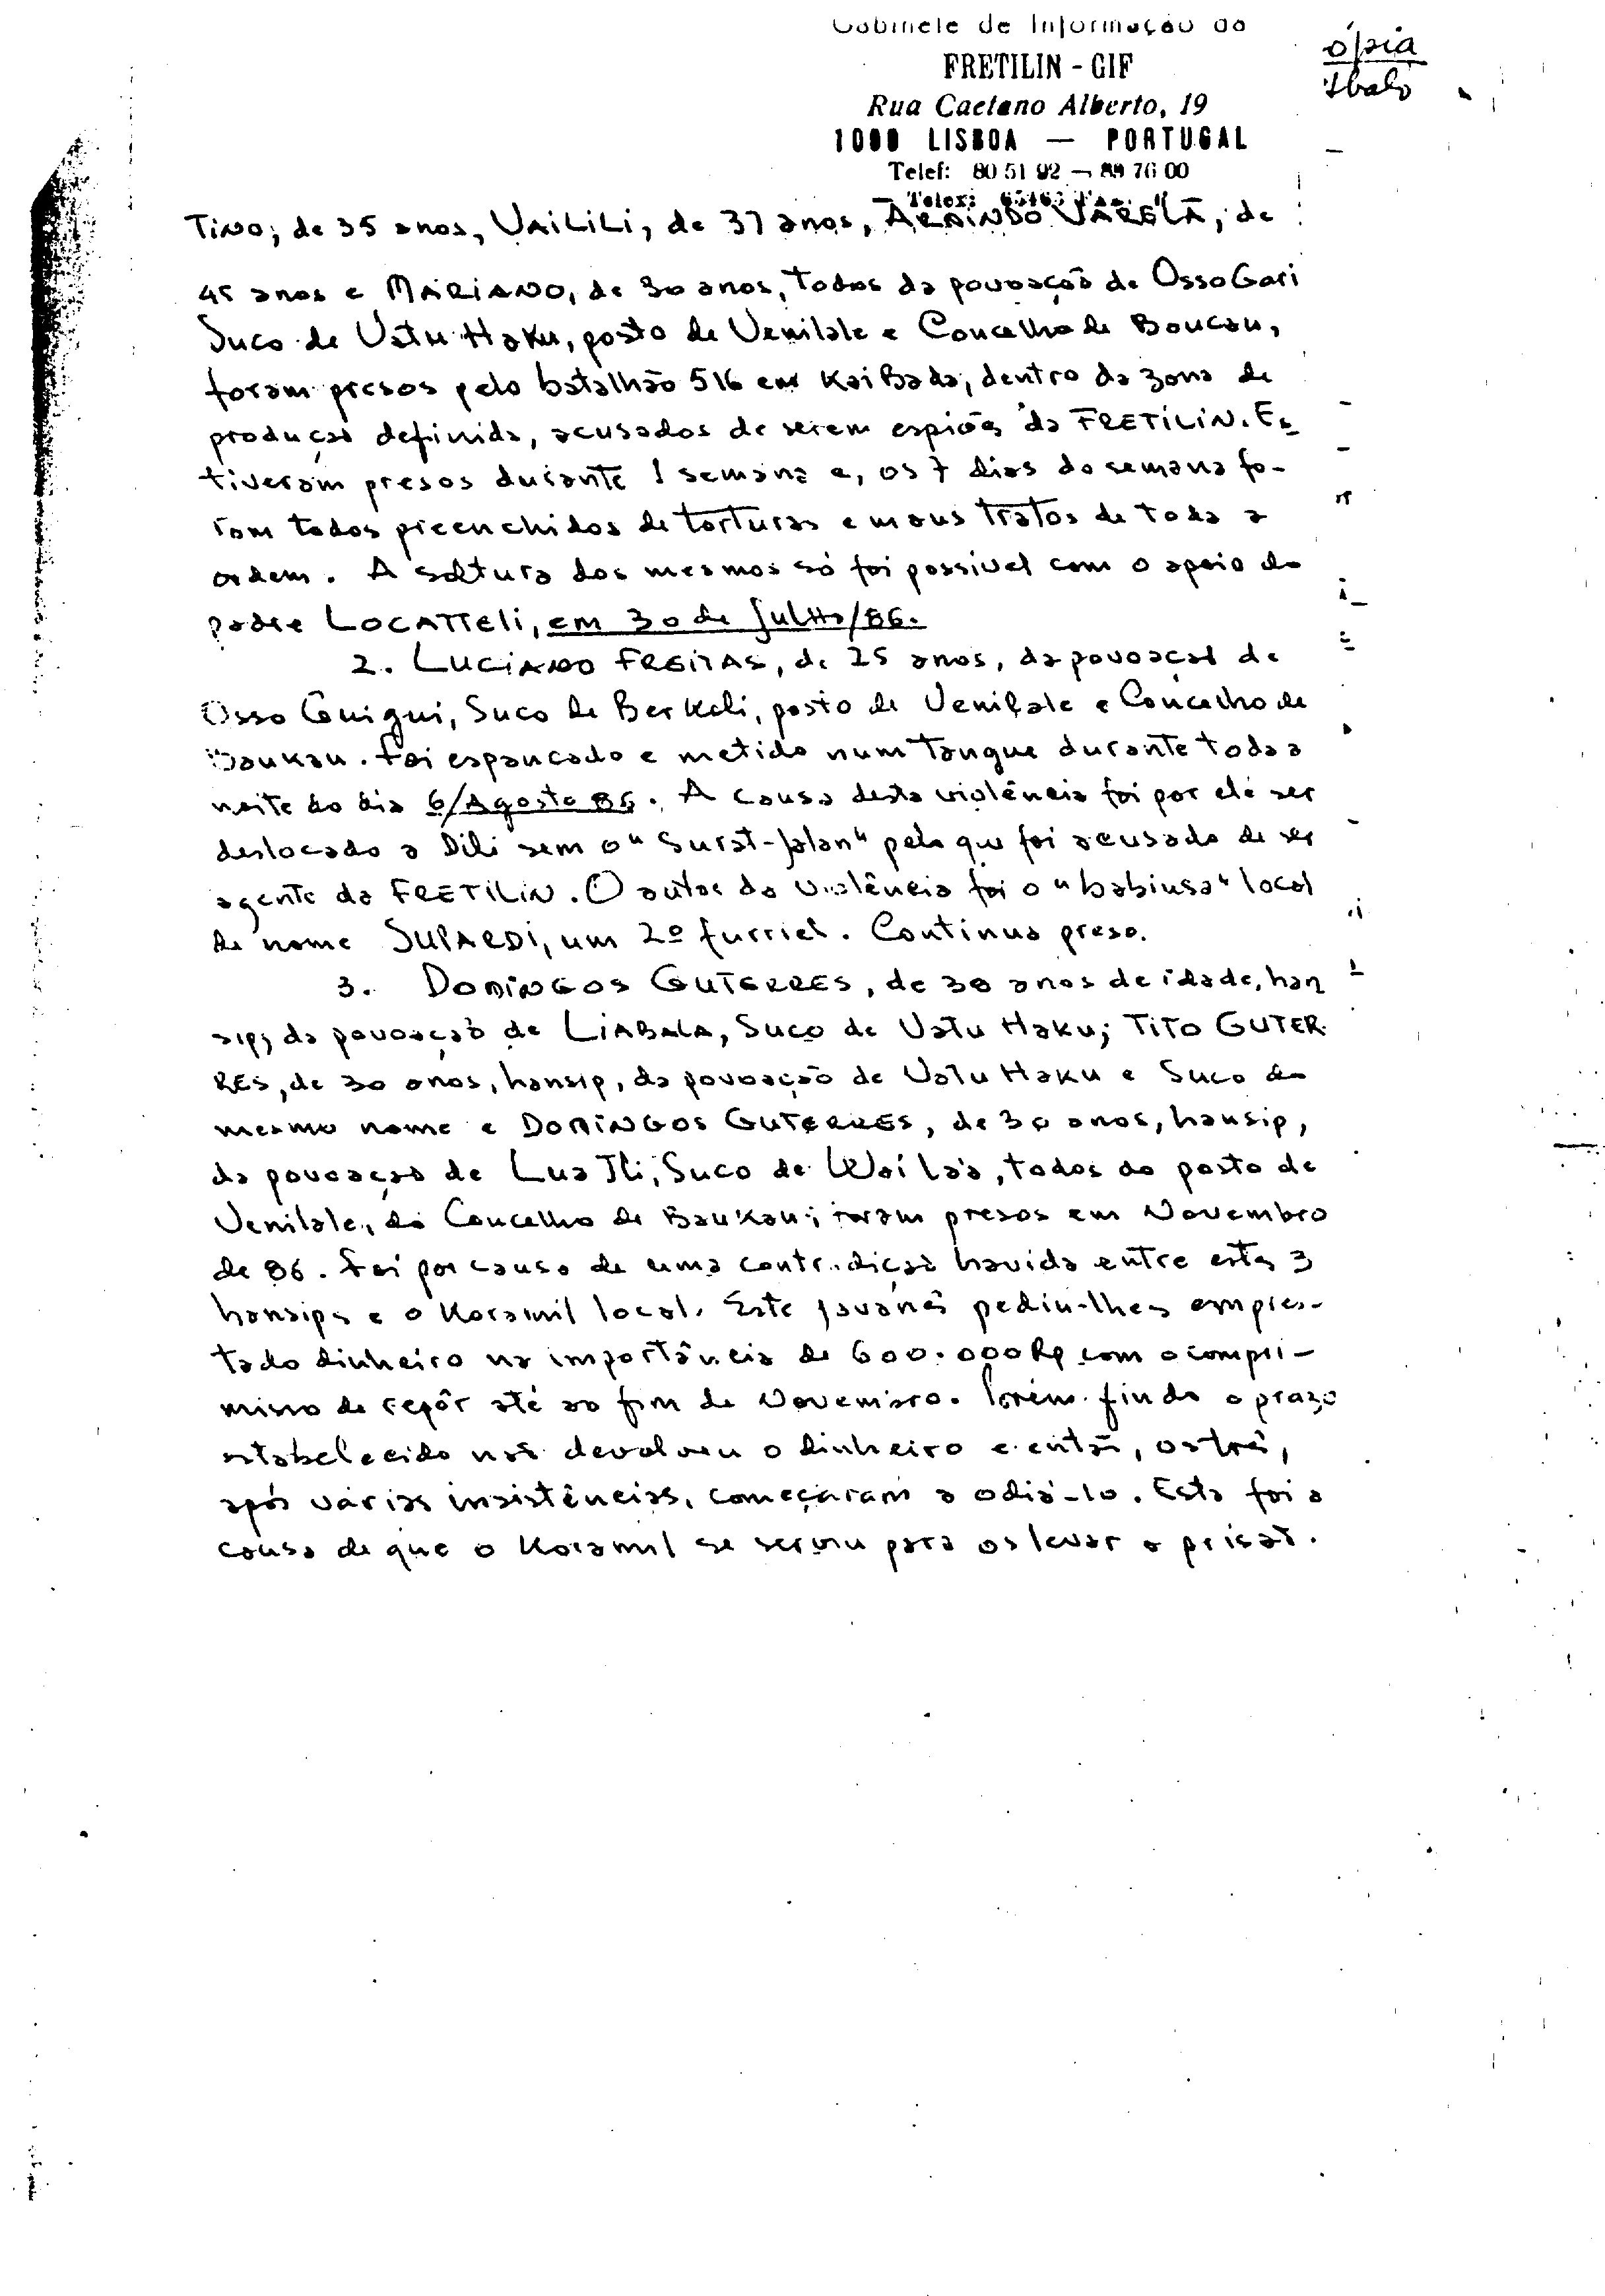 Gabinete de Informação da
FRETILIN - GIF
Rua Caetano Alberto, 19
1000 LISBOA — PORTUGAL
Telef: 80 51 92 — 76 00
Telex:
ópia
TINO, de 35 anos, VAILILI, de 37 anos, ARMINDO VARELA, de
45 anos e MARIANO, de 30 anos, todos da povoação de Osso Gari
Suco de Uatu Haku, posto de Venilale e Concelho de Boucau,
foram presos pelo batalhão 516 em Kai Bada, dentro da zona de
produção definida, acusados de serem espiões da FRETILIN. Es
tiveram presos durante 1 semana e, os 7 dias da semana fo-
ram todos preenchidos de torturas e maus tratos de toda a
ordem. A soltura dos mesmos só foi possivel com o apoio do
padre LOCATTELI, em 30 de Julho/86.
2. LUCIANO FREITAS, de 25 anos, da povoação de
Osso Guigui, Suco de Berkoli, posto de Venilale e Concelho de
Baukau. Foi espancado e metido num tanque durante toda a
noite do dia 6/Agosto 86. A causa desta violência foi por ele ser
deslocado a Dili sem o "Surat-Jalan" pelo que foi acusado de ser
agente da FRETILIN. O autor da violência foi o "babinsa" local
de nome SUPARDI, um 2º furriel. Continua preso.
3. DOMINGOS GUTERRES, de 30 anos de idade, han
sip, da povoação de LIABALA, Suco de Uatu Haku; TITO GUTER
RES, de 30 anos, hansip, da povoação de Uatu Haku e Suco do
mesmo nome e DOMINGOS GUTERRES, de 30 anos, hansip,
da povoação de Lua Ili, Suco de Uai Laa, todos do posto de
Venilale, do Concelho de Baukau; foram presos em Novembro
de 86. Foi por causa de uma contradição havida entre estes 3
hansips e o Koramil local. Este javanês pediu-lhes empres-
tado dinheiro na importância de 600.000 Rp com o compro-
misso de repôr até ao fim de Novembro. Porém findo o prazo
estabelecido não devolveu o dinheiro e então, os três,
após várias insistências, começaram a odiá-lo. Esta foi a
causa de que o Koramil se serviu para os levar a prisão.